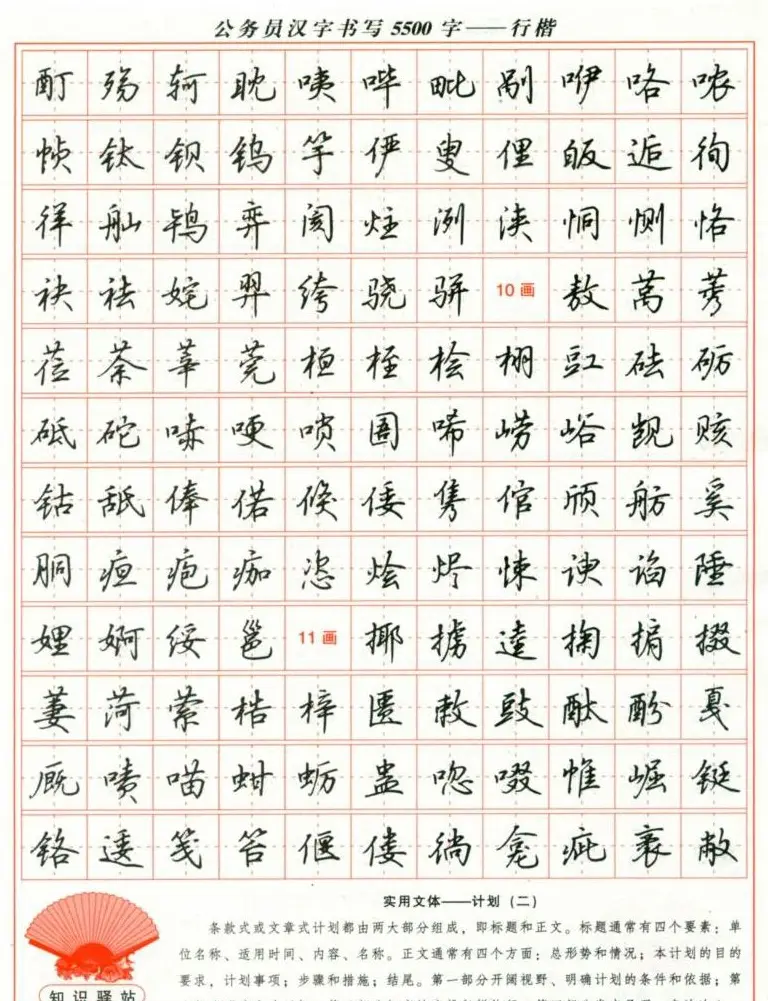 公务员汉字书写5500字——行楷
酊 殇 轲 耽 咦 哔 毗 剐 咿 咯 哝
帧 钛 钡 钨 竽 俨 叟 俚 皈 逅 徇
徉 舢 鸨 弈 阂 炷 洌 浃 恫 恻 恪
袂 祛 姹 羿 绔 骁 骈 10画 敖 莴 莠
莅 荼 莘 莞 桓 桎 桧 栩 豇 砝 砺
砥 砣 哧 哽 唢 圄 唏 崂 峪 觊 赅
钴 舐 俸 偌 倏 倭 隽 倌 颀 舫 奚
胴 疸 疱 痂 恣 烩 烬 悚 谀 谄 陲
娌 婀 绥 邕 11画 揶 掳 逵 掬 掮 掇
萋 菏 萦 梏 梓 匿 敕 豉 酞 酚 戛
厩 啧 喵 蚶 蛎 蛊 唿 啜 帷 崛 铤
铬 逶 笺 笤 偃 偻 徜 龛 疵 袤 敝
实用文体——计划（二）
条款式或文章式计划都由两大部分组成，即标题和正文。标题通常有四个要素：单
位名称、适用时间、内容、名称。正文通常有四个方面：总形势和情况；本计划的目的
要求，计划事项；步骤和措施；结尾。第一部分开阔视野、明确计划的条件和依据；第
知识驿站